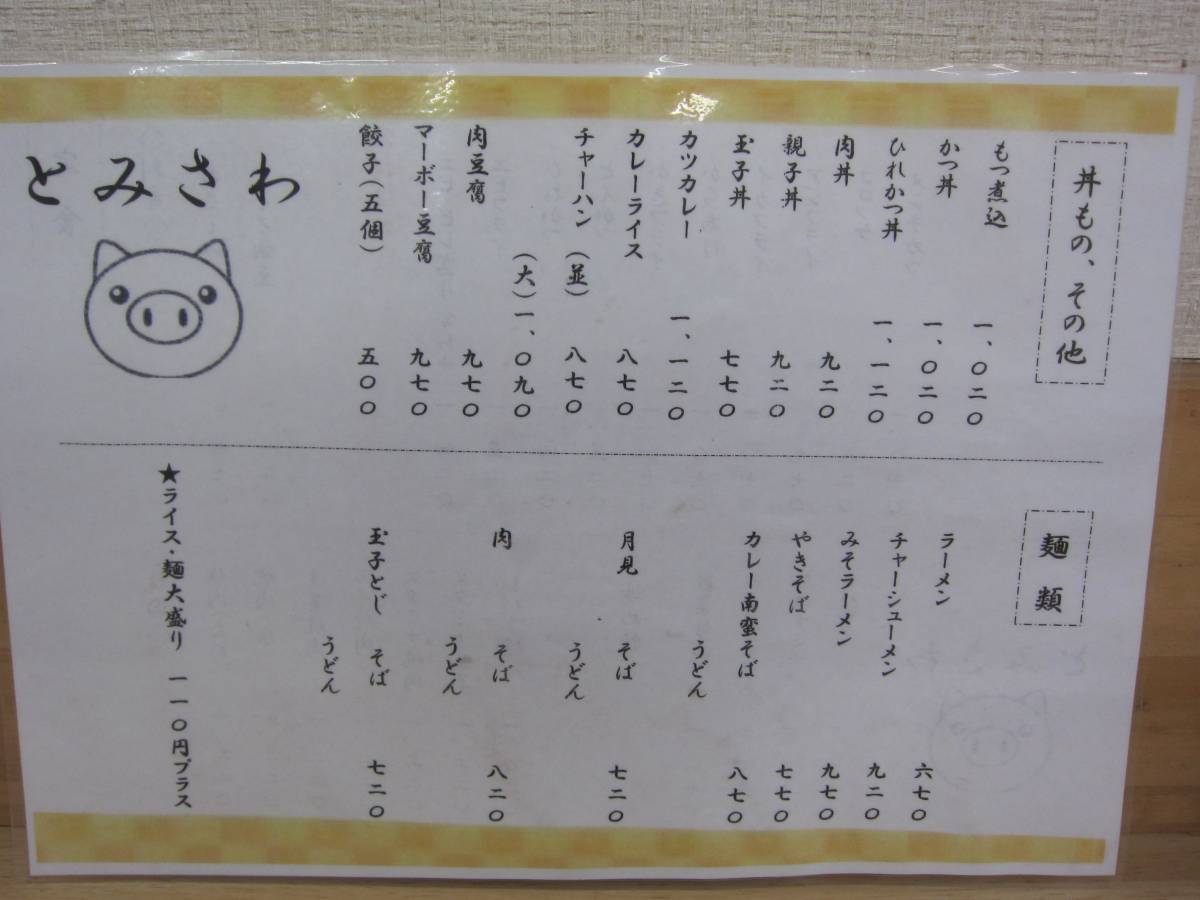 丼もの、その他
もつ煮込 一、〇二〇
かつ丼 一、〇二〇
ひれかつ丼 一、一二〇
肉丼 九二〇
親子丼 九二〇
玉子丼 七七〇
カツカレー 一、一二〇
カレーライス 八七〇
チャーハン(並) 八七〇
(大)一、〇九〇
肉豆腐 九七〇
マーボー豆腐 九七〇
餃子(五個) 五〇〇
とみさわ
麺類
ラーメン 六七〇
チャーシューメン 九二〇
みそラーメン 九七〇
やきそば 七七〇
カレー南蛮そば 八七〇
うどん
月見 そば 七二〇
うどん
肉 そば 八二〇
うどん
玉子とじ そば 七二〇
うどん
★ライス・麺大盛り 一一〇円プラス